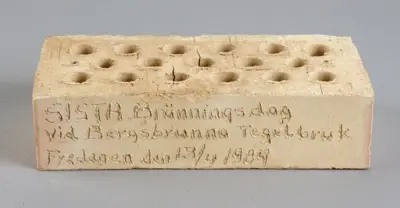 SISTA Bränningsdag
vid Bergsbrunna Tegelbruk
Fredagen den 13/4 1989